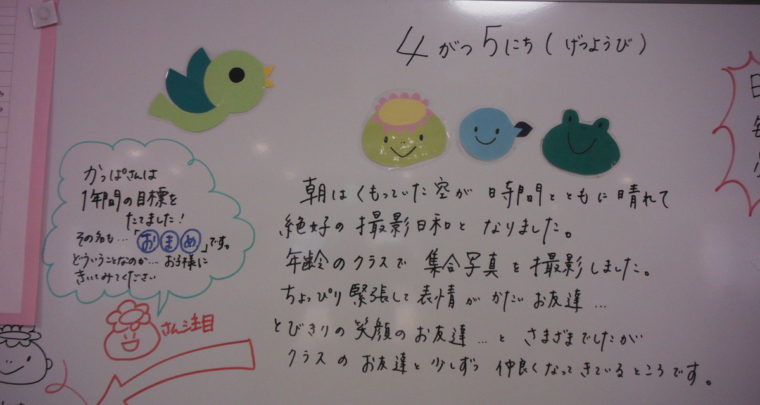 4がつ5にち(げつようび)
かっぱさんは
1年間の目標を
たてました!
その名も…「おまめ」です。
どういうことなのか…お子様に
きいてみてください
さん注目
朝はくもっていた空が時間とともに晴れて
絶好の撮影日和となりました。
年齢のクラスで集合写真を撮影しました。
ちょっぴり緊張して表情がかたいお友達…
とびきりの笑顔のお友達…とさまざまでしたが
クラスのお友達と少しずつ仲良くなってきているところです。